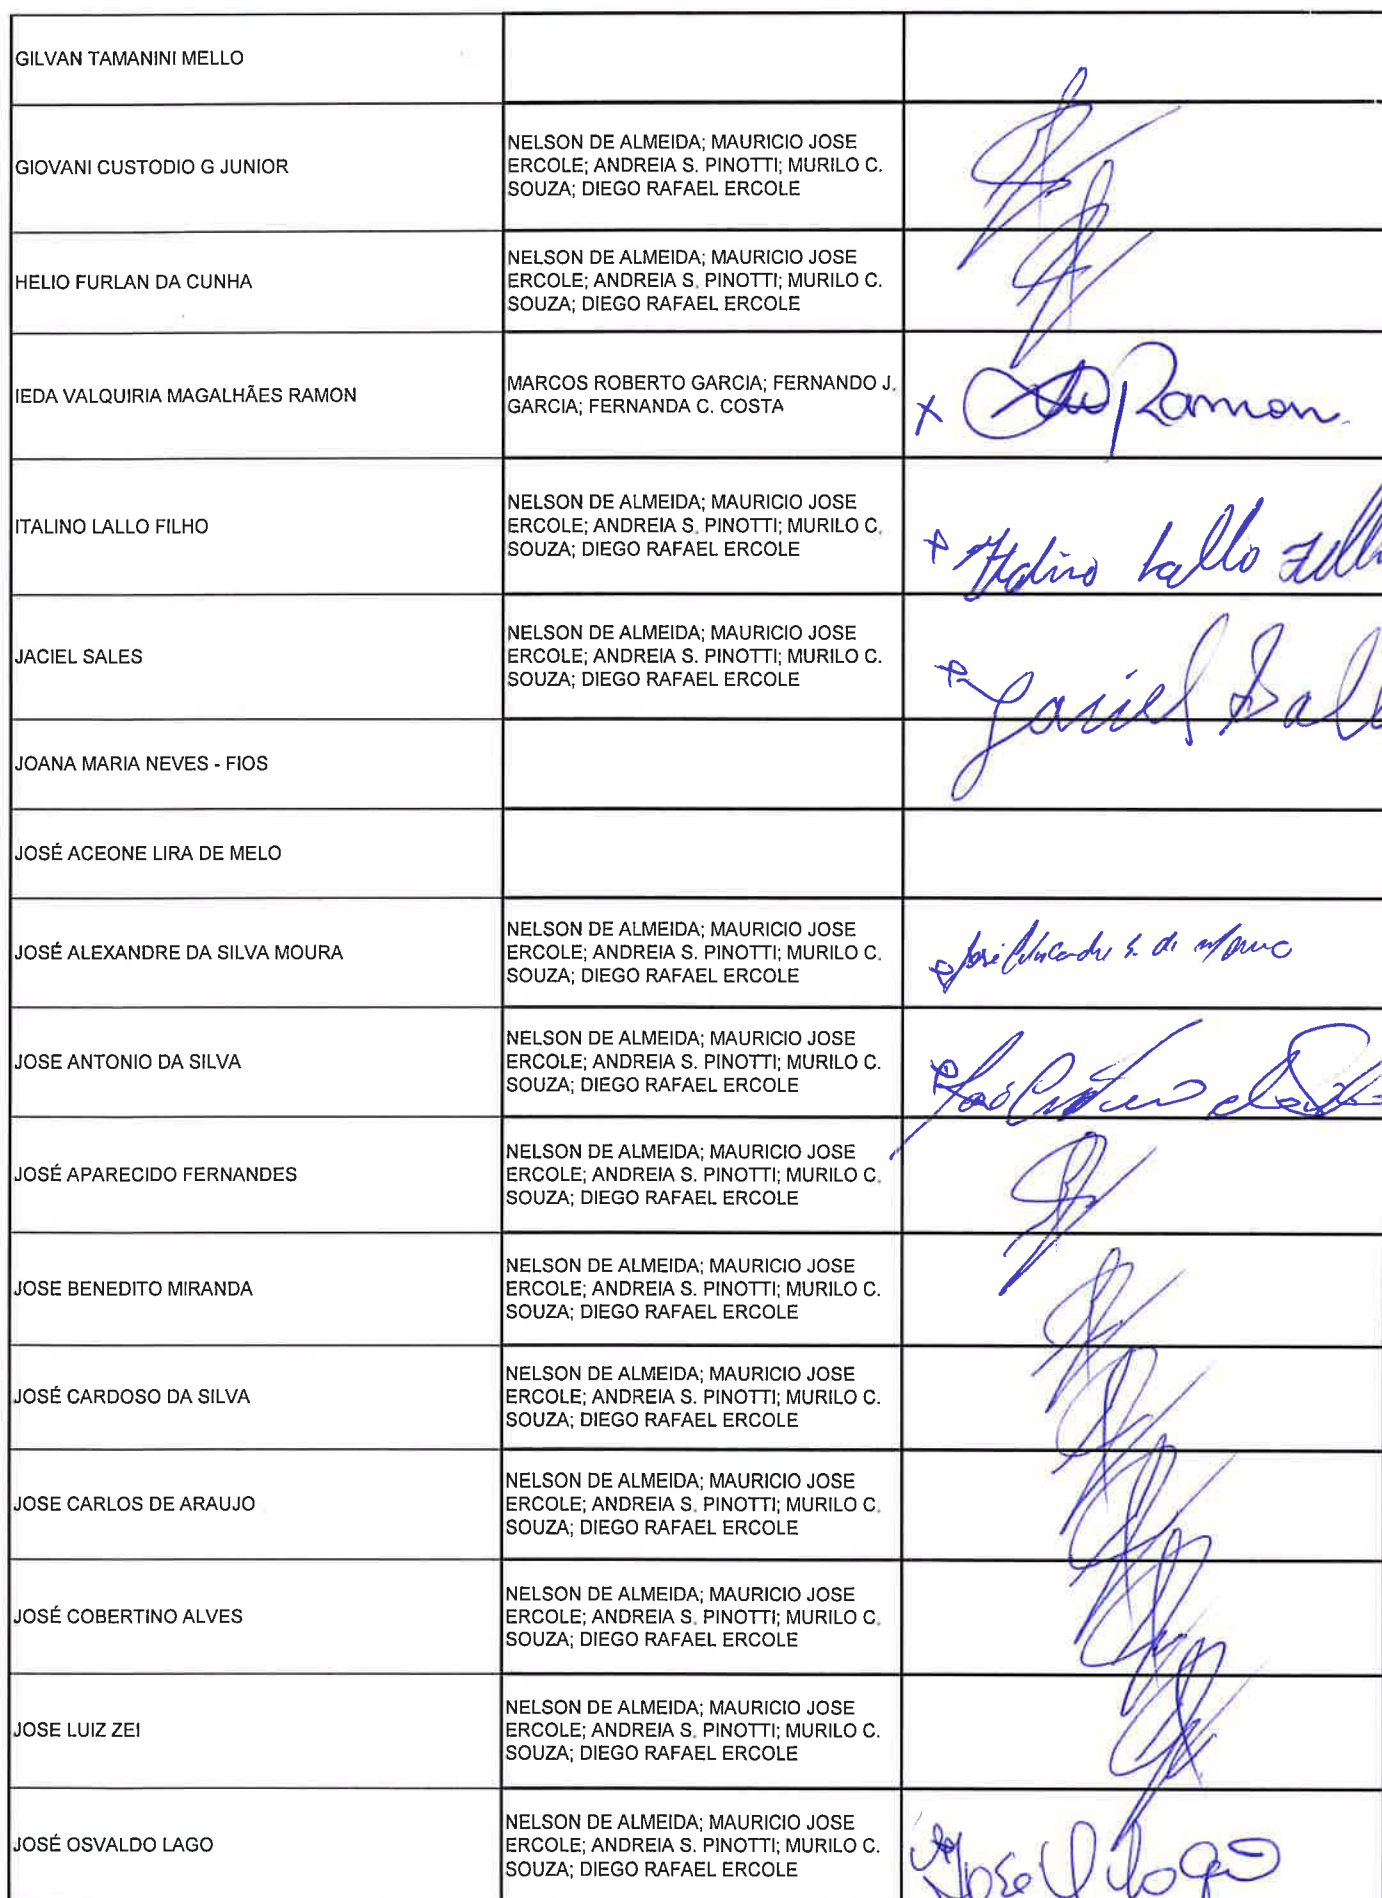 GILVAN TAMANINI MELLO
GIOVANI CUSTODIO G JUNIOR
NELSON DE ALMEIDA; MAURICIO JOSE
ERCOLE; ANDREIA S. PINOTTI; MURILO C.
SOUZA; DIEGO RAFAEL ERCOLE
HELIO FURLAN DA CUNHA
NELSON DE ALMEIDA; MAURICIO JOSE
ERCOLE; ANDREIA S. PINOTTI; MURILO C.
SOUZA; DIEGO RAFAEL ERCOLE
IEDA VALQUIRIA MAGALHÃES RAMON
MARCOS ROBERTO GARCIA; FERNANDO J.
GARCIA; FERNANDA C. COSTA
x Ramon
ITALINO LALLO FILHO
NELSON DE ALMEIDA; MAURICIO JOSE
ERCOLE; ANDREIA S. PINOTTI; MURILO C.
SOUZA; DIEGO RAFAEL ERCOLE
x Italino Lallo
JACIEL SALES
NELSON DE ALMEIDA; MAURICIO JOSE
ERCOLE; ANDREIA S. PINOTTI; MURILO C.
SOUZA; DIEGO RAFAEL ERCOLE
x Jaciel
JOANA MARIA NEVES - FIOS
JOSÉ ACEONE LIRA DE MELO
JOSÉ ALEXANDRE DA SILVA MOURA
NELSON DE ALMEIDA; MAURICIO JOSE
ERCOLE; ANDREIA S. PINOTTI; MURILO C.
SOUZA; DIEGO RAFAEL ERCOLE
x José
JOSE ANTONIO DA SILVA
NELSON DE ALMEIDA; MAURICIO JOSE
ERCOLE; ANDREIA S. PINOTTI; MURILO C.
SOUZA; DIEGO RAFAEL ERCOLE
x José
JOSÉ APARECIDO FERNANDES
NELSON DE ALMEIDA; MAURICIO JOSE
ERCOLE; ANDREIA S. PINOTTI; MURILO C.
SOUZA; DIEGO RAFAEL ERCOLE
JOSE BENEDITO MIRANDA
NELSON DE ALMEIDA; MAURICIO JOSE
ERCOLE; ANDREIA S. PINOTTI; MURILO C.
SOUZA; DIEGO RAFAEL ERCOLE
JOSÉ CARDOSO DA SILVA
NELSON DE ALMEIDA; MAURICIO JOSE
ERCOLE; ANDREIA S. PINOTTI; MURILO C.
SOUZA; DIEGO RAFAEL ERCOLE
JOSE CARLOS DE ARAUJO
NELSON DE ALMEIDA; MAURICIO JOSE
ERCOLE; ANDREIA S. PINOTTI; MURILO C.
SOUZA; DIEGO RAFAEL ERCOLE
JOSÉ COBERTINO ALVES
NELSON DE ALMEIDA; MAURICIO JOSE
ERCOLE; ANDREIA S. PINOTTI; MURILO C.
SOUZA; DIEGO RAFAEL ERCOLE
JOSE LUIZ ZEI
NELSON DE ALMEIDA; MAURICIO JOSE
ERCOLE; ANDREIA S. PINOTTI; MURILO C.
SOUZA; DIEGO RAFAEL ERCOLE
JOSÉ OSVALDO LAGO
NELSON DE ALMEIDA; MAURICIO JOSE
ERCOLE; ANDREIA S. PINOTTI; MURILO C.
SOUZA; DIEGO RAFAEL ERCOLE
José Lago